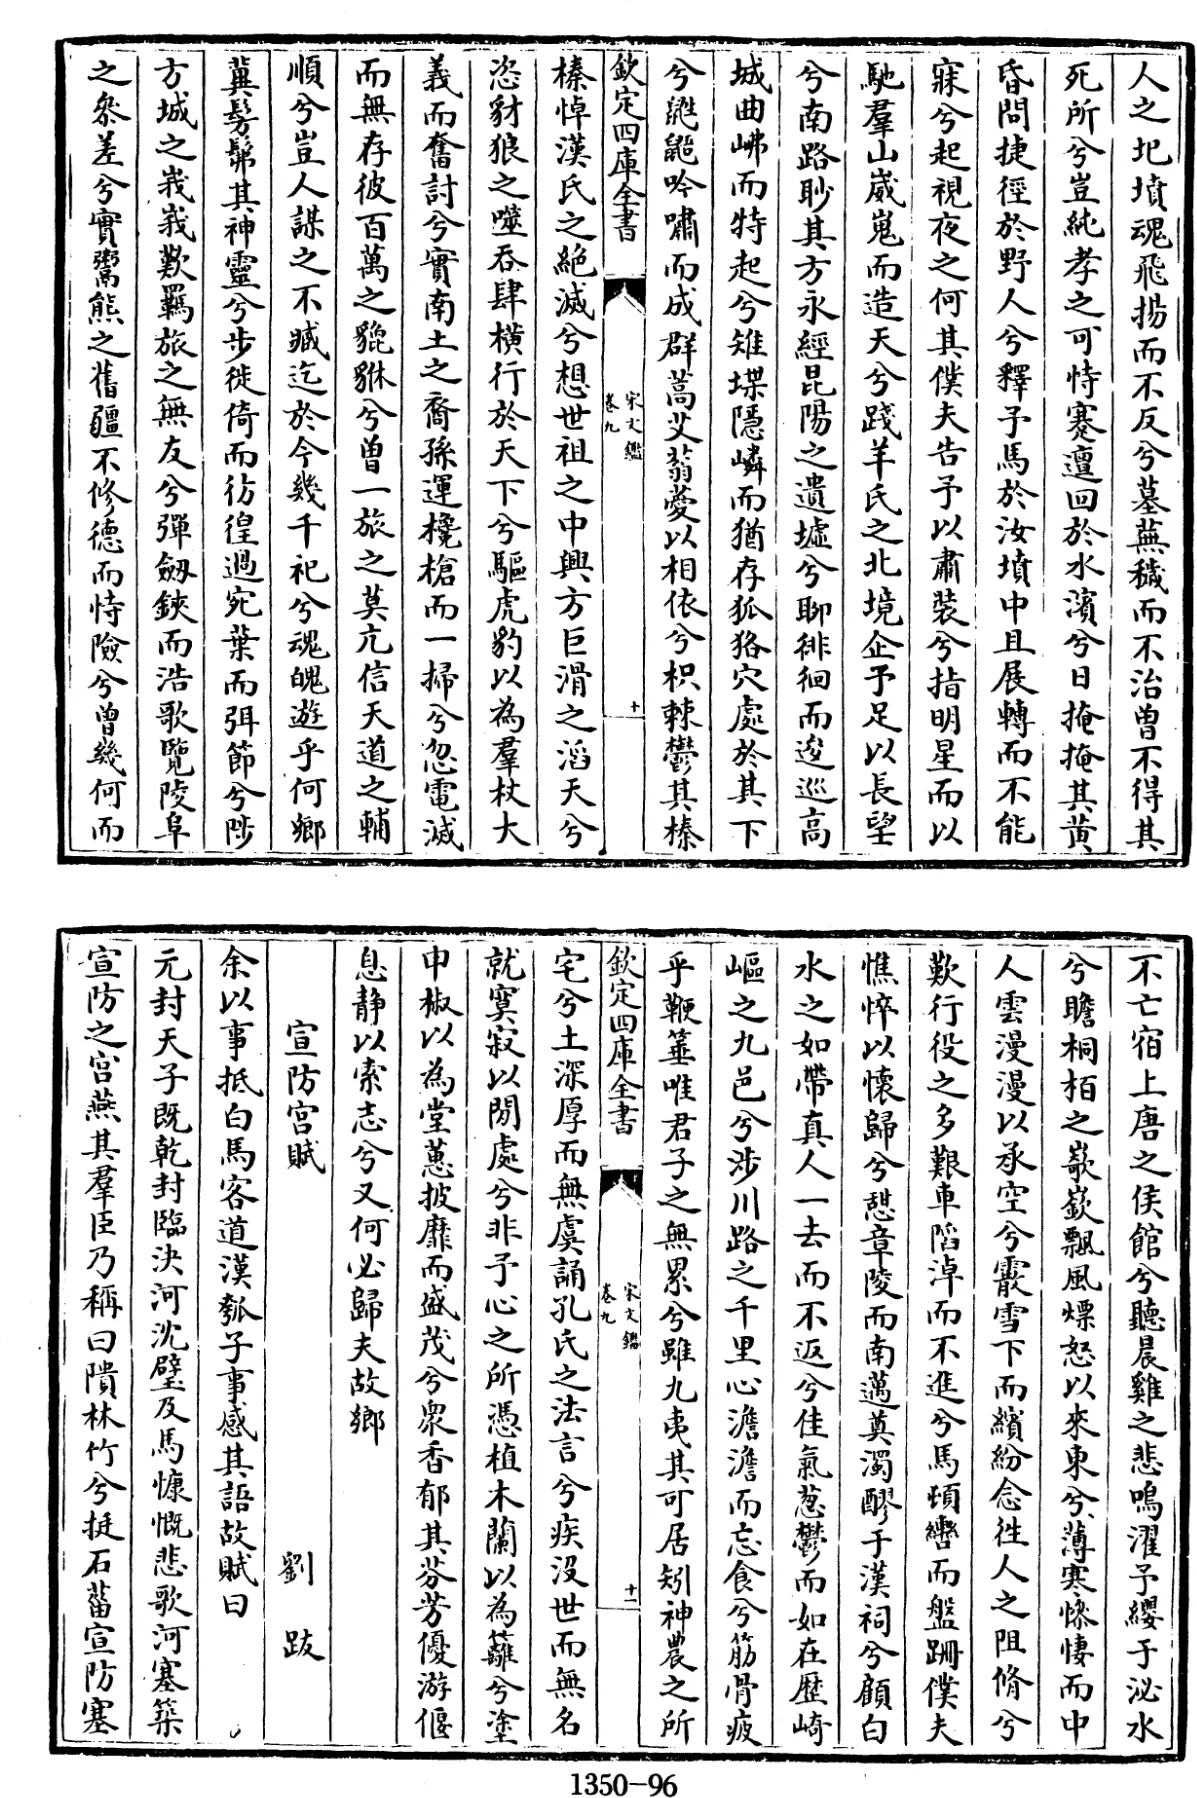 人之圮墳魂飛揚而不反兮墓蕪穢而不治曾不得其
死所兮豈純孝之可恃蹇邅回於水濱兮日掩掩其黄
昏問捷徑於野人兮釋予馬於汝墳中且展轉而不能
寐兮起視夜之何其僕夫告予以肅裝兮指明星而以
馳羣山嵗嵬而造天兮踐羊氏之北境企予足以長望
兮南路眇其方永經昆陽之遺墟兮聊徘徊而逡巡高
城曲岪而特起兮雉堞隱嶙而猶存狐狢穴處於其下
兮鼪鼯吟嘯而成群蒿艾蓊薆以相依兮枳棘鬱其榛
欽定四庫全書
宋文鑑
卷九
十
榛悼漢氏之絶滅兮想世祖之中興方巨滑之滔天兮
恣豺狼之噬吞肆横行於天下兮驅虎豹以為羣杖大
義而奮討兮實南土之裔孫運欃槍而一掃兮忽電滅
而無存彼百萬之貔貅兮曾一旅之莫亢信天道之輔
順兮豈人謀之不臧迄於今幾千祀兮魂魄遊乎何鄉
冀髣髴其神靈兮步徙倚而彷徨過宛葉而弭節兮陟
方城之峩峩歎羈旅之無友兮彈劔鋏而浩歌覽陵阜
之叅差兮實鬻熊之舊疆不修德而恃險兮曾幾何而
不亡宿上唐之侯館兮聽晨雞之悲鳴濯予纓于泌水
兮瞻桐栢之嶔嶔飄風熛怒以來東兮薄寒慘悽而中
人雲漫漫以承空兮霰雪下而繽紛念徃人之阻脩兮
歎行役之多艱車陷淖而不進兮馬頓轡而盤跚僕夫
憔悴以懷歸兮愬章陵而南邁奠濁醪于漢祠兮顧白
水之如帶真人一去而不返兮佳氣葱鬱而如在歴崎
嶇之九邑兮涉川路之千里心澹澹而忘食兮筋骨疲
乎鞭箠唯君子之無累兮雖九夷其可居矧神農之所
欽定四庫全書
宋文鑑
卷九
十一
宅兮土深厚而無虞誦孔氏之法言兮疾沒世而無名
就寞寂以閒處兮非予心之所憑植木蘭以為籬兮塗
申椒以為堂蕙披靡而盛茂兮衆香郁其芬芳優游偃
息靜以索志兮又何必歸夫故鄉
宣防宫賦 劉跂
余以事抵白馬客道漢瓠子事感其語故賦曰
元封天子既乾封臨決河沈璧及馬慷慨悲歌河塞築
宣防之宫燕其羣臣乃稱曰隤林竹兮揵石菑宣防塞
1350-96